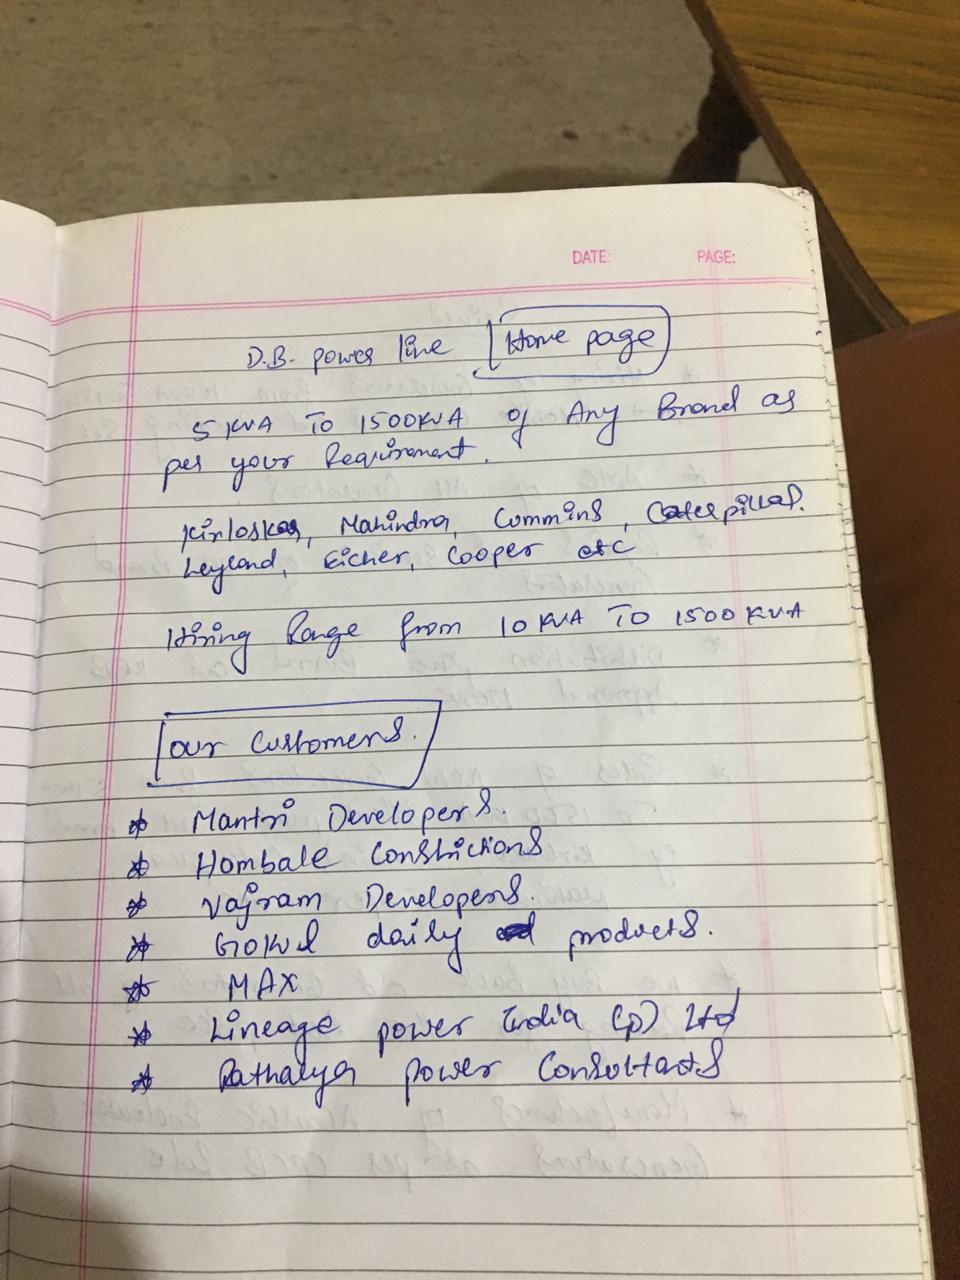 DATE: PAGE:
D.B. power line Home page
5 KVA To 1500KVA of Any Brand as
per your Requirement.
Kirloskar, Mahindra, Cummins, Caterpillar.
Leyland, Eicher, Cooper etc
Hiring Range from 10 KVA To 1500 KVA
our Customers.
* Mantri Developers.
* Hombale Constrictions
* Vajram Developers.
* GOKUL daily products.
* MAX
* Lineage power India (p) Ltd
* Pathalya power Consultants